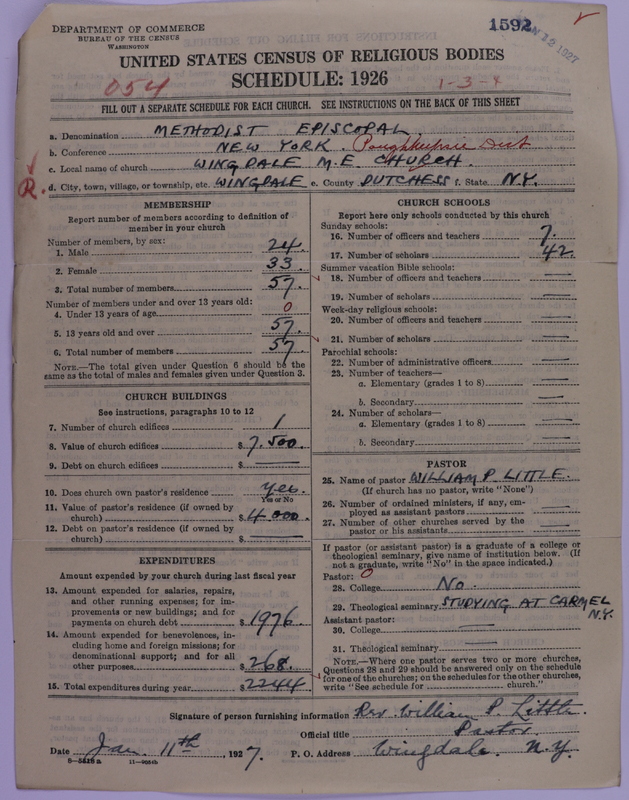 DEPARTMENT OF COMMERCE
BUREAU OF THE CENSUS
WASHINGTON
1592
JAN 12 1927
UNITED STATES CENSUS OF RELIGIOUS BODIES
SCHEDULE: 1926
054
1-3-4
FILL OUT A SEPARATE SCHEDULE FOR EACH CHURCH. SEE INSTRUCTIONS ON THE BACK OF THIS SHEET
a. Denomination METHODIST EPISCOPAL
b. Conference NEW YORK. Poughkeepsie Dist
c. Local name of church WINGDALE M.E CHURCH.
R. d. City, town, village, or township, etc. WINGDALE e. County DUTCHESS f. State N.Y.
MEMBERSHIP
Report number of members according to definition of
member in your church
Number of members, by sex:
1. Male 24
2. Female 33
3. Total number of members 57
Number of members under and over 13 years old:
4. Under 13 years of age 0
5. 13 years old and over 57
6. Total number of members 57
NOTE.—The total given under Question 6 should be the
same as the total of males and females given under Question 3.
CHURCH BUILDINGS
See instructions, paragraphs 10 to 12
7. Number of church edifices 1
8. Value of church edifices $ 7,500
9. Debt on church edifices $ —
10. Does church own pastor's residence Yes.
Yes or No
11. Value of pastor's residence (if owned by
church) $ 4000
12. Debt on pastor's residence (if owned by
church) $ —
EXPENDITURES
Amount expended by your church during last fiscal year
13. Amount expended for salaries, repairs,
and other running expenses; for im-
provements or new buildings; and for
payments on church debt $ 1976
14. Amount expended for benevolences, in-
cluding home and foreign missions; for
denominational support; and for all
other purposes $ 268.
15. Total expenditures during year $ 2244
CHURCH SCHOOLS
Report here only schools conducted by this church
Sunday schools:
16. Number of officers and teachers 7.
17. Number of scholars 42
Summer vacation Bible schools:
18. Number of officers and teachers —
19. Number of scholars —
Week-day religious schools:
20. Number of officers and teachers —
21. Number of scholars —
Parochial schools:
22. Number of administrative officers —
23. Number of teachers—
a. Elementary (grades 1 to 8) —
b. Secondary —
24. Number of scholars—
a. Elementary (grades 1 to 8) —
b. Secondary —
PASTOR
25. Name of pastor WILLIAM P. LITTLE.
(If church has no pastor, write "None")
26. Number of ordained ministers, if any, em-
ployed as assistant pastors —
27. Number of other churches served by the
pastor or his assistants —
If pastor (or assistant pastor) is a graduate of a college or
theological seminary, give name of institution below. (If
not a graduate, write "No" in the space indicated.)
Pastor: 0
28. College No.
29. Theological seminary STUDYING AT CARMEL
N.Y.
Assistant pastor:
30. College —
31. Theological seminary —
NOTE.—Where one pastor serves two or more churches,
Questions 28 and 29 should be answered only on the schedule
for one of the churches; on the schedules for the other churches,
write "See schedule for church."
Signature of person furnishing information Rev. William P. Little
Official title Pastor.
Date Jan. 11th, 1927. P. O. Address Wingdale. N.Y.
8—5518a 11—9064b